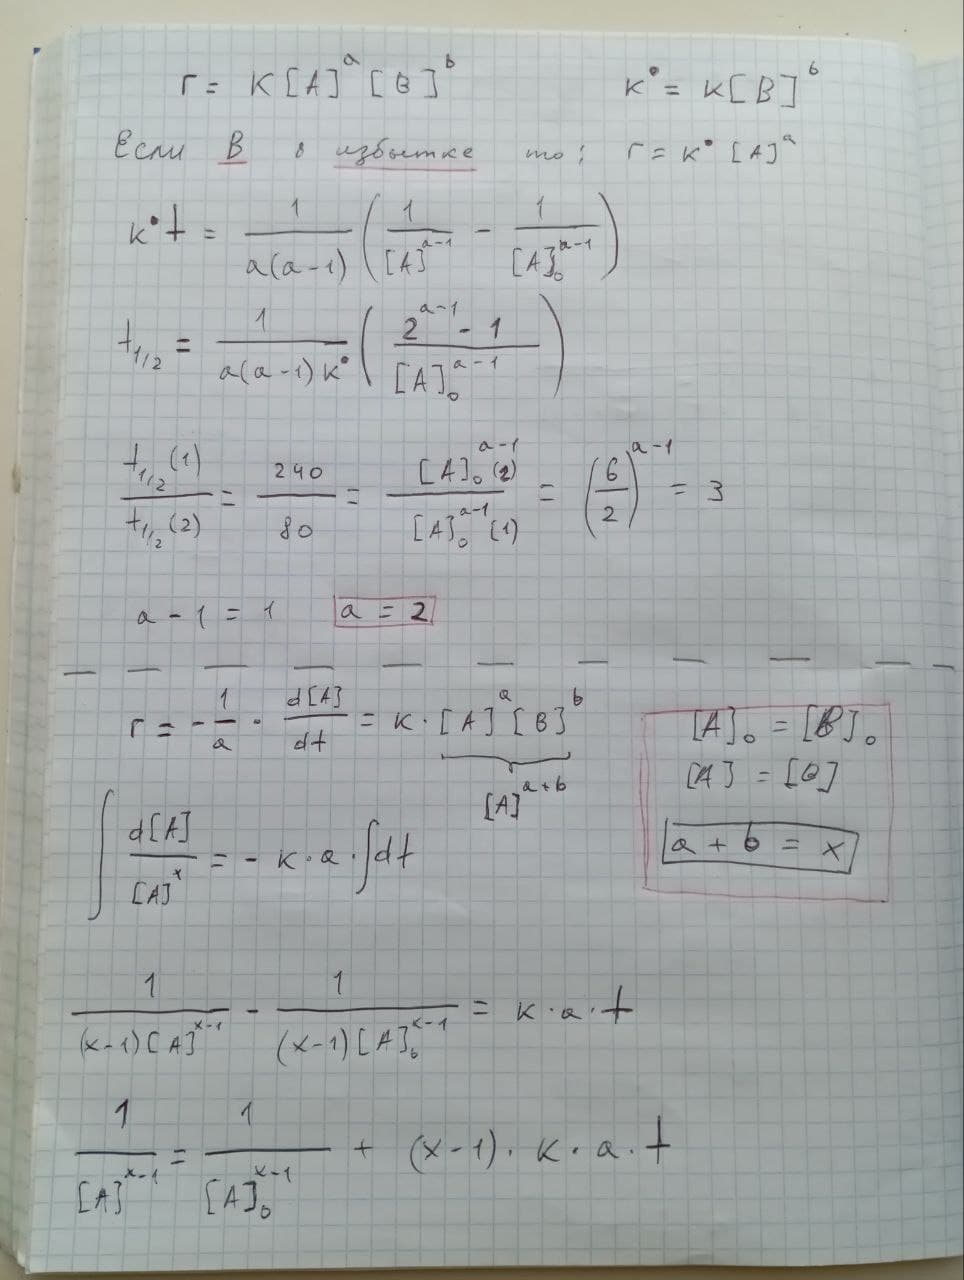 r = K[A]^a [B]^b    K° = K[B]^b
Если B в избытке то: r = K° [A]^a
K°t = 1/(a(a-1)) (1/[A]^(a-1) - 1/[A]₀^(a-1))
t₁/₂ = 1/(a(a-1)K°) ((2^(a-1) - 1)/[A]₀^(a-1))
t₁/₂(1)/t₁/₂(2) = 240/80 = [A]₀^(a-1)(2)/[A]₀^(a-1)(1) = (6/2)^(a-1) = 3
a - 1 = 1    a = 2
r = - 1/a · d[A]/dt = K · [A]^a [B]^b
[A]^(a+b)
[A]₀ = [B]₀
[A] = [B]
a + b = x
∫ d[A]/[A]^x = - K · a · ∫dt
1/((x-1)[A]^(x-1)) - 1/((x-1)[A]₀^(x-1)) = K · a · t
1/[A]^(x-1) = 1/[A]₀^(x-1) + (x-1) · K · a · t